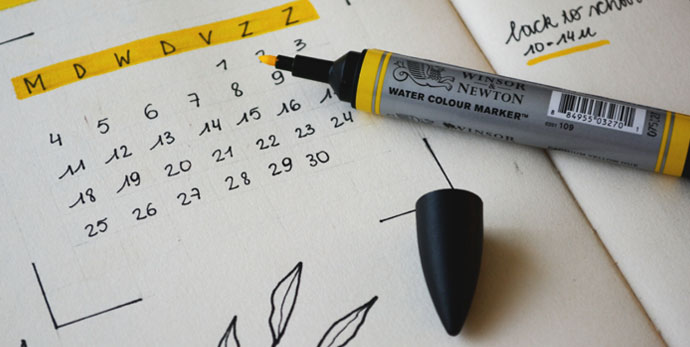 M D W D V Z Z
1 2 3
4 5 6 7 8 9
11 12 13 14 15 16
18 19 20 21 22 23 24
25 26 27 28 29 30
back to
10-14u
WINSOR
&
NEWTON
WATER COLOUR MARKER™
8 84955 03270
109
WINSOR